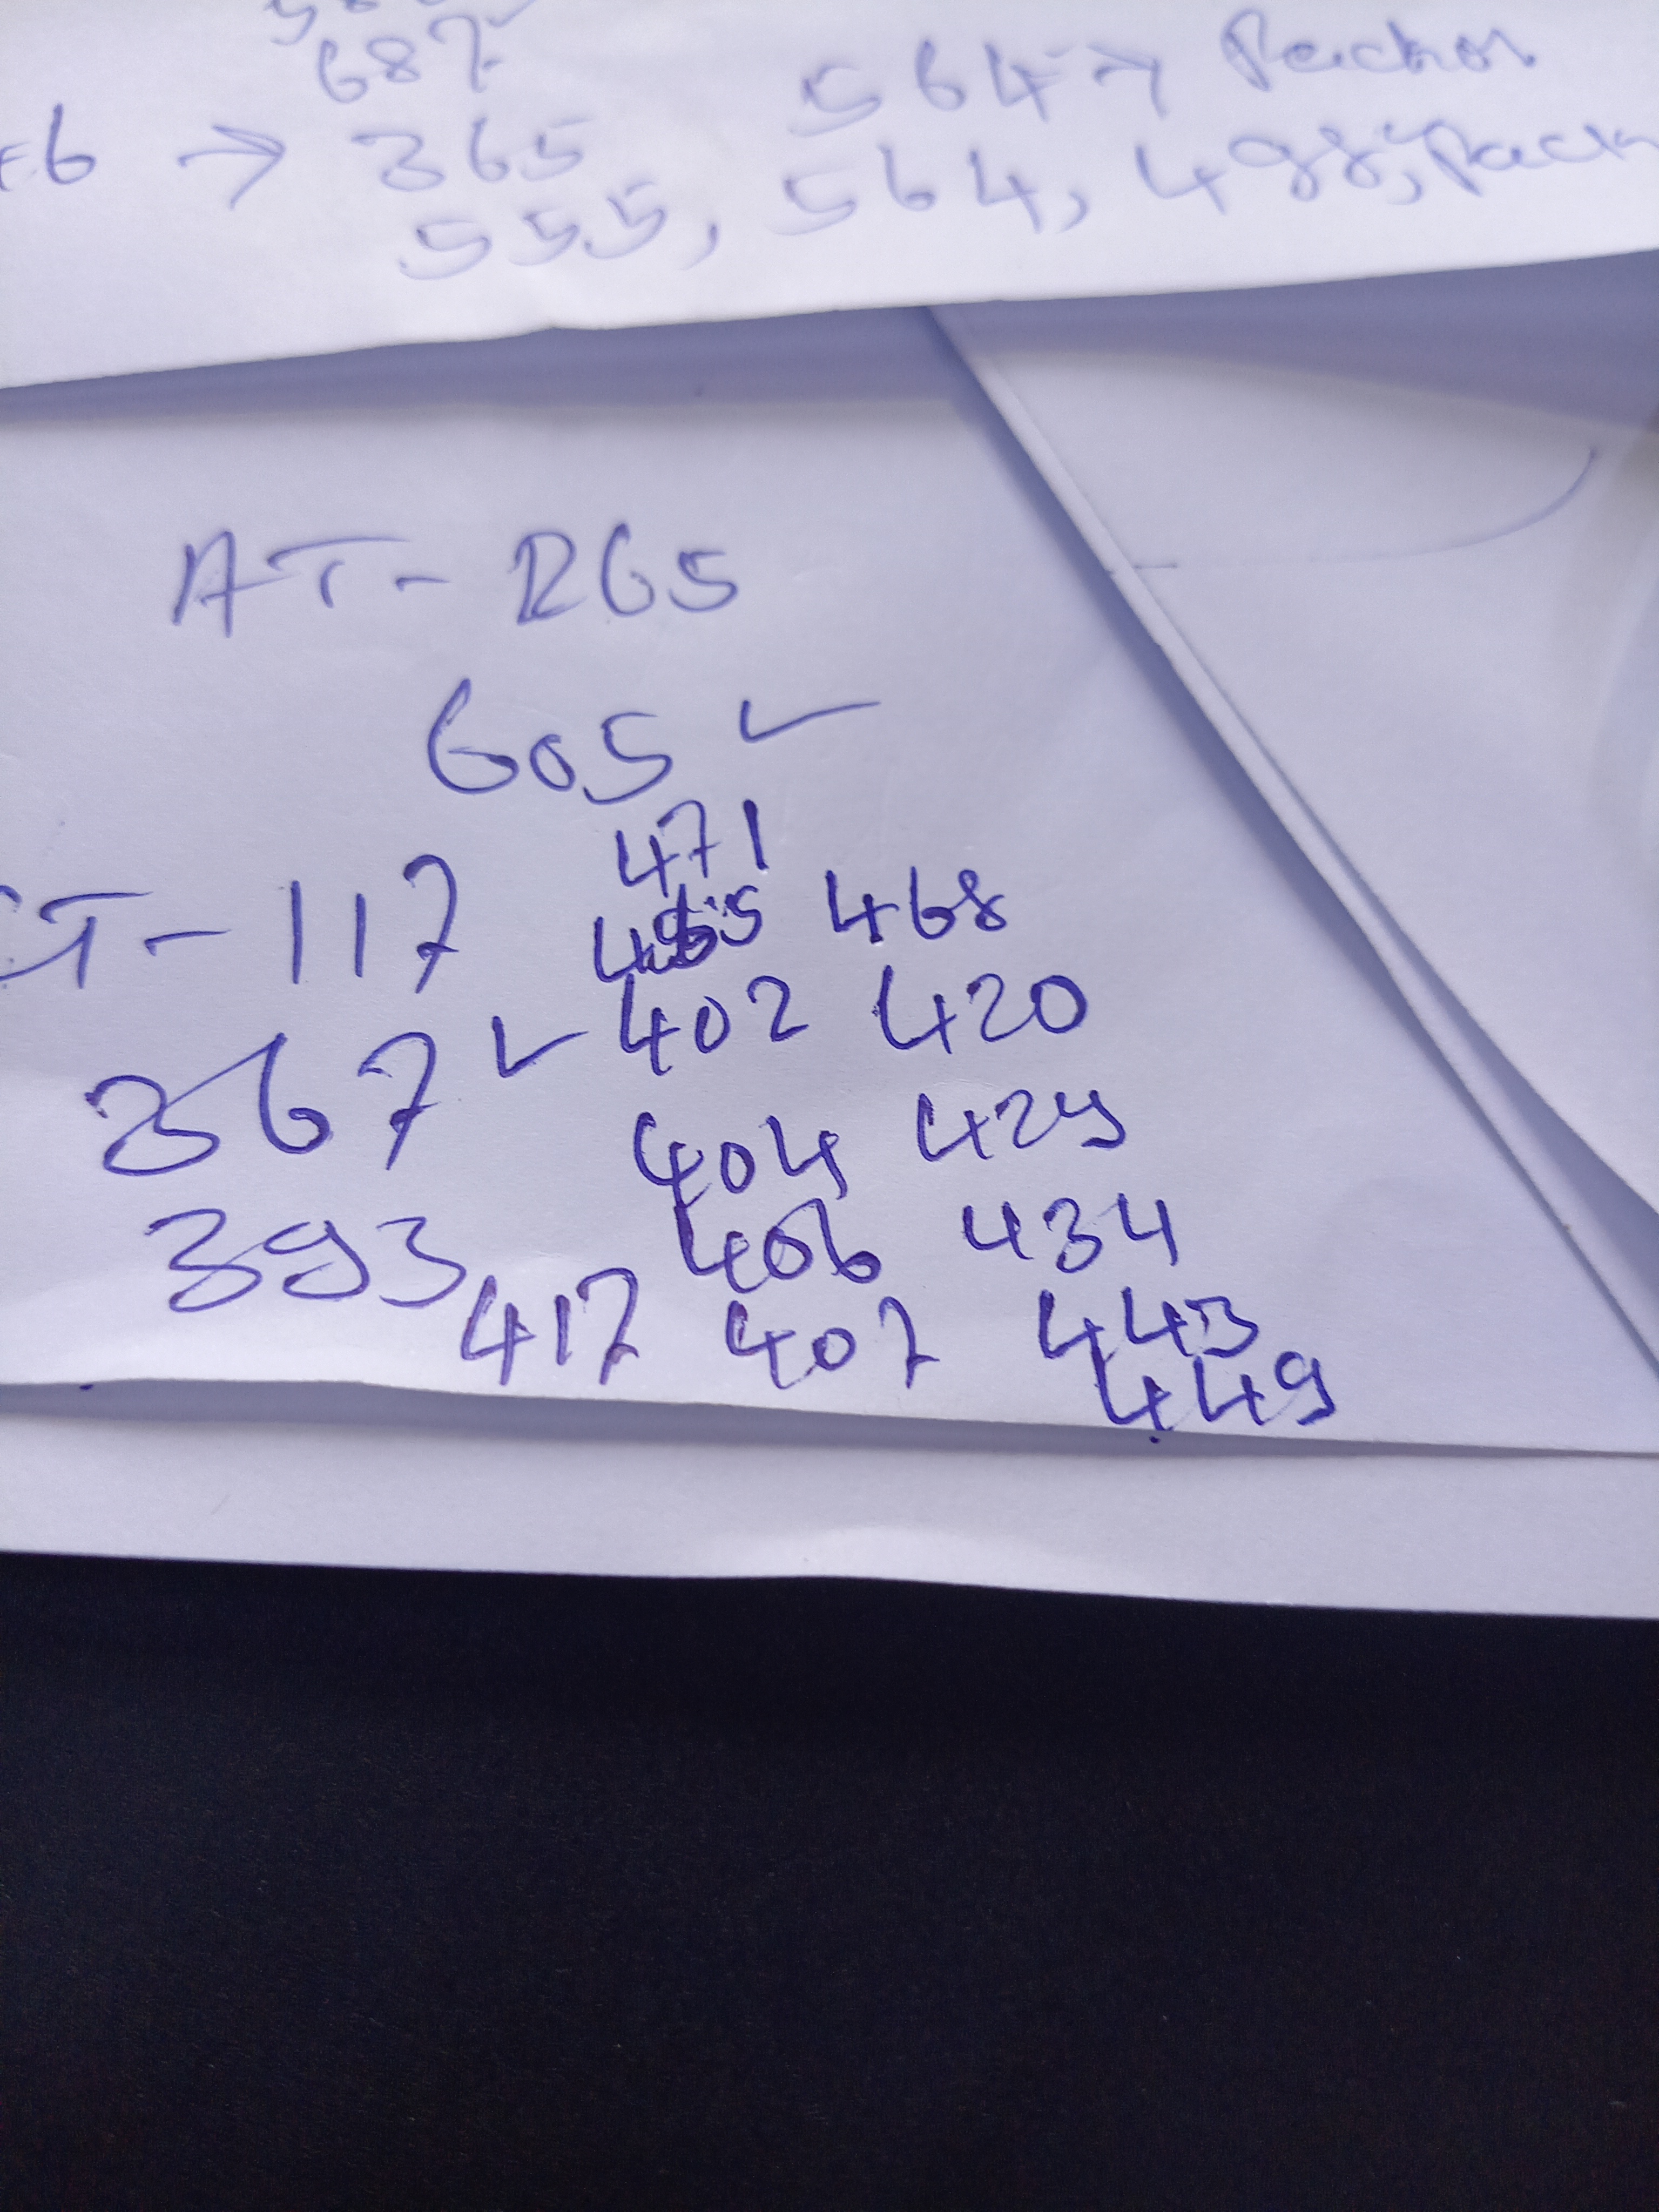 687
6 → 365
564 → Packor
555, 564, 498, Pack
AT - R65
605 ✓
471
T - 117
465 468
367 ✓ 402 420
404 429
393 406 434
417 407 443
449